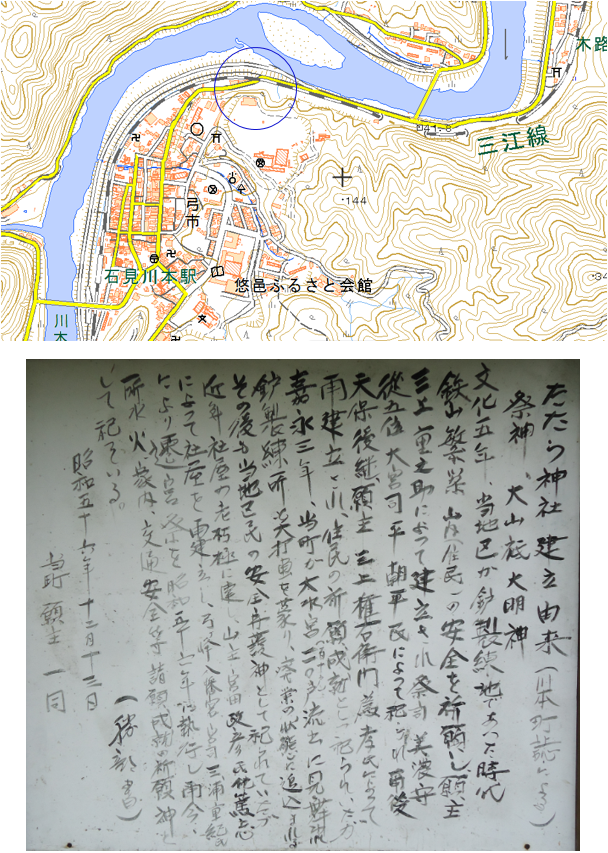 木路
三江線
41.8
・144
・34
弓市
石見川本駅
悠邑ふるさと会館
川本
たたら神社建立由来(川本町誌による)
祭神 大山祗大明神
文化五年、当地区が鈩製練地であった時代
鉄山繁栄、山内(住民)の安全を祈願し願主
三上重之助によって建立され祭司美波守
従五位大宮司平朝平氏によって祀られ爾後
天保後継願主三上権右衛門 厳孝氏によって
再建立され住民の祈願成就として祀られ、たが
嘉永三年、当町が大水害二〇〇戸流出に見舞われ
鈩製練所も大打
その後も当地区民の安全守護神として祀られていたが
近年社屋の老朽極に達し、山主宮田政彦氏他篤志
によって社屋を再建立し、弓ヶ峯八幡宮宮司三浦
により遷宮祭を昭和五十六年に執行し爾今、
所水、火、家内、交通安全等諸願成就の祈願神と
して祀ている。
昭和五十六年十二月十三日
当町願主一同